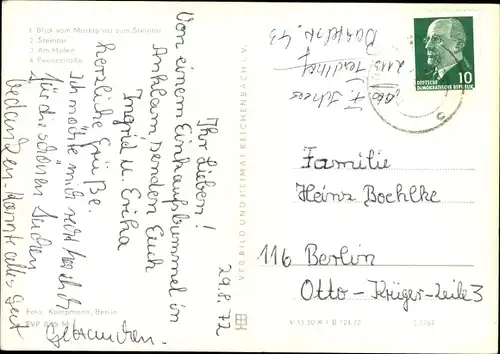 1. Blick vom Marktplatz zum Steintor
2. Steintor
3. Am Hafen
4. Peenestraße
29.8.72
Ihr Lieben!
Von einem Einkaufsbummel in
Anklam, senden Euch
herzliche Grüße.
Ingrid u. Erika
Ich möchte mich recht herzlich
für die schönen Sachen
bedanken. Konnte alles gut
gebrauchen.
Foto: Kampmann, Berlin
VEB BILD UND HEIMAT REICHENBACH I. V.
DEUTSCHE
DEMOKRATISCHE REPUBLIK
10
Familie
Heinz Boehlke
116 Berlin
Otto-Krüger-Zeile 3